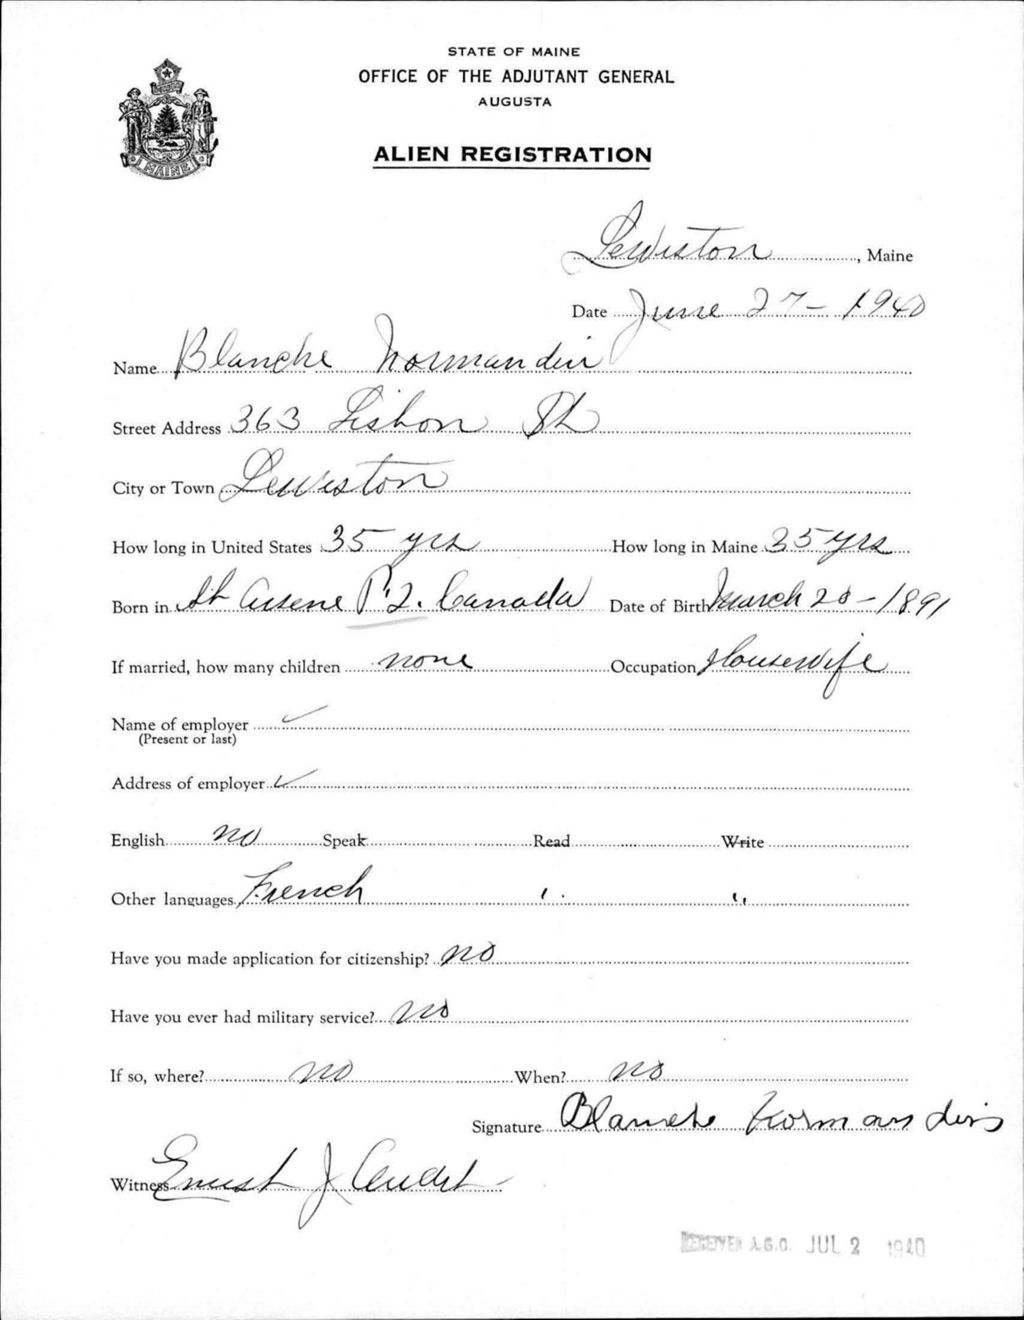 STATE OF MAINE
OFFICE OF THE ADJUTANT GENERAL
AUGUSTA
ALIEN REGISTRATION
MAINE
Lewiston, Maine
Date June 27-1940
Name Blanche Normandin
Street Address 363 Lisbon St
City or Town Lewiston
How long in United States 35 yrs How long in Maine 35 yrs
Born in St Arsene P.Q. Canada Date of Birth March 20-1891
If married, how many children none Occupation Housewife
Name of employer ✓
(Present or last)
Address of employer ✓
English no Speak Read Write
Other languages French " "
Have you made application for citizenship? no
Have you ever had military service? no
If so, where? no When? no
Signature Blanche Normandin
Witness Ernest J Audet
RECEIVED A.G.O. JUL 2 1940